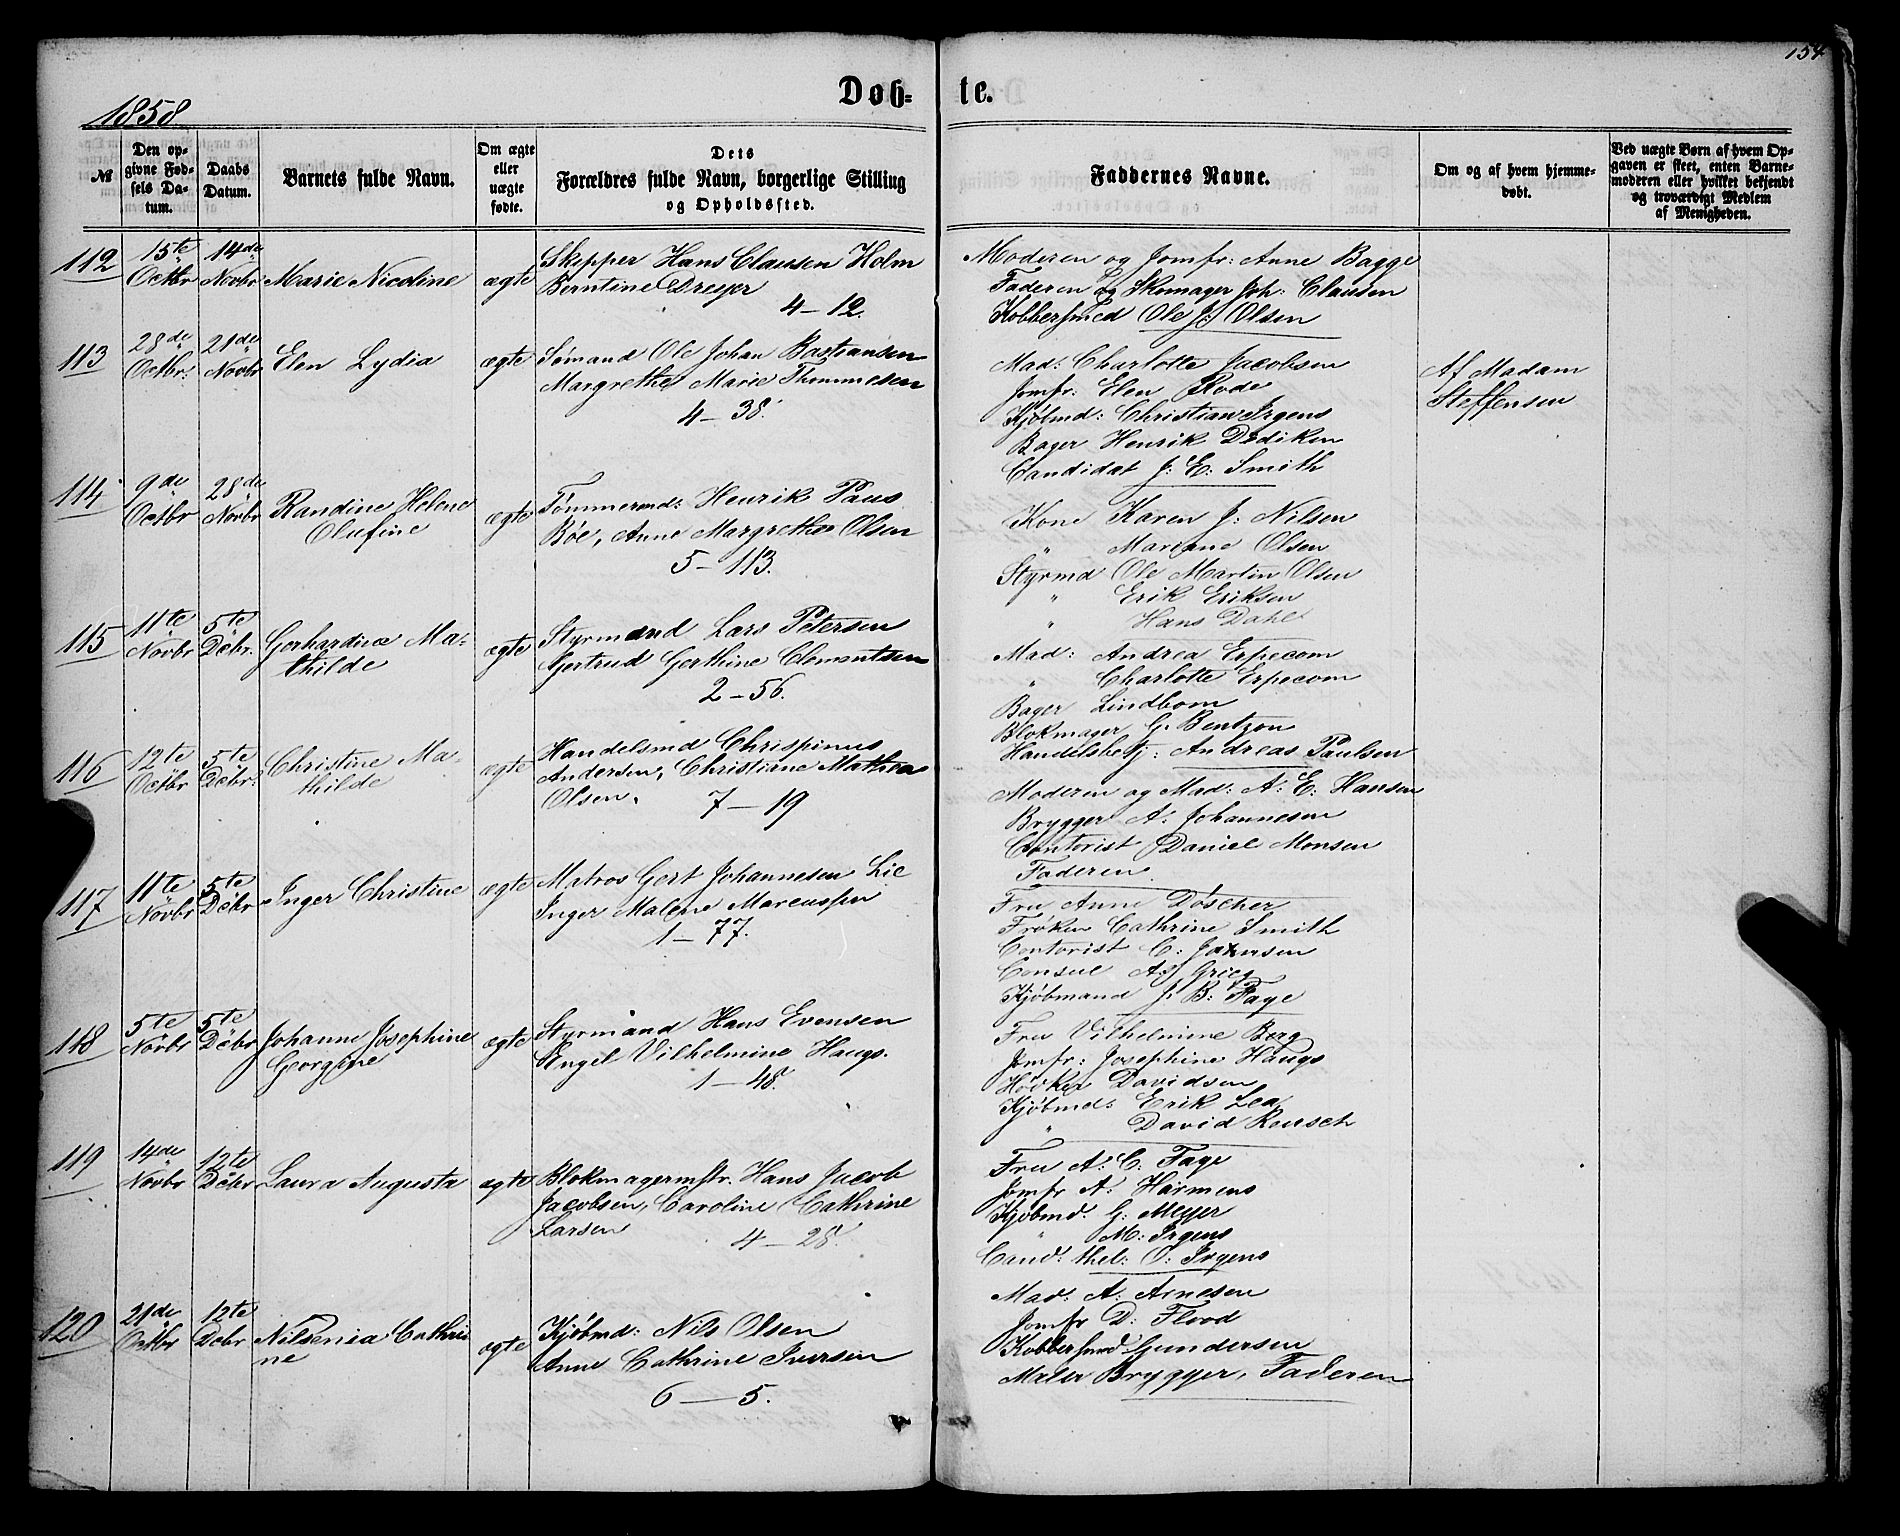 154
1858
Døb- te.
№
Den opgivne Fødsels Datum.
Daabs Datum.
Barnets fulde Navn.
Om ægte eller uægte fødte.
Dets Forældres fulde Navn, borgerlige Stilling og Opholdssted.
Faddernes Navne.
Om og af hvem hjemmedøbt.
Ved uægte Børn af hvem Opgaven er skeet, enten Barnemoderen eller hvilket bekjendt og troværdigt Medlem af Menigheden.
112
15te Octbr
14de Novbr
Marie Nicoline
ægte
Skipper Hans Clausen Holm
Berntine Dreyer
4-12.
Moderen og Jomfr: Anne Bagge
Faderen og Skomager Joh: Clausen
Kobbersmed Ole J: Olsen
113
28de Octbr:
21de Novbr
Elen Lydia
ægte
Sømand Ole Johan Bastiansen
Margrethe Marie Thommesen
4-38.
Mad: Charlotte Jacobsen
Jomfr: Elen Rode
Kjøbmd: Christian Irgens
Bager Henrik Dediken
Candidat J: E: Smith
Af Madam
Steffensen
114
9de Octbr
28de Novbr
Randine Helene
Olufine
ægte
Tømmermd: Henrik Paus
Bøe, Anne Margrethe Olsen
5-113.
Kone Karen J: Nilsen
" Mariane Olsen
Styrmd Ole Martin Olsen
" Erik Eriksen
" Hans Dahl
115
11te Novbr
5te Debr.
Gerhardine Ma-
thilde
ægte
Styrmand Lars Petersen
Gertrud Gerthine Clementsen
2-56.
Mad: Andrea Erpecom
" Charlotte Erpecom
Bager Lindbom
Blokmager G. Bentzon
Handelsbetj: Andreas Paulsen
116
12te Octbr
5te Debr:
Christine Ma-
thilde
ægte
Handelsmd Chrispinus
Andersen, Christiane Mathea
Olsen.
7-19
Moderen og Mad: A: E: Hansen
Brygger A: Johannesen
Contorist Daniel Monsen
Faderen.
117
11te Novbr
5te Debr
Inger Christine
ægte
Matros Gert Johannesen Lie
Inger Malene Marcussen
1-77.
Fru Anne Døscher
Frøken Cathrine Smith
Contorist C: Jansen
Consul A: Grieg
Kjøbmand J: B: Faye
118
5te Novbr
5te Debr
Johanne Josephine
Georgine
ægte
Styrmand Hans Evensen
Engel Vilhelmine Haugs.
1-48.
Fru Vilhelmine Berg
Jomfr: Josephine Haugs
Høker Davidsen
Kjøbmd: Erik Lea
" David Reusch
119
14de Novbr
12te Debr
Laura Augusta
ægte
Blokmagermstr. Hans Jacob
Jacobsen, Caroline Cathrine
Larsen
4-28.
Fru A: C: Faye
Jomfr A: Harmens
Kjøbmd. G: Meyer
" M: Irgens
Cand: thel: O: Irgens
120
21de Octbr
12te Debr
Nilsenia Cathri
ne
ægte
Kjøbmd: Nils Olsen
Anne Cathrine Iversen
6-5.
Mad: A: Arnesen
Jomfr D: Flood
Kobbersmed Gundersen
Maler Brygger, Faderen